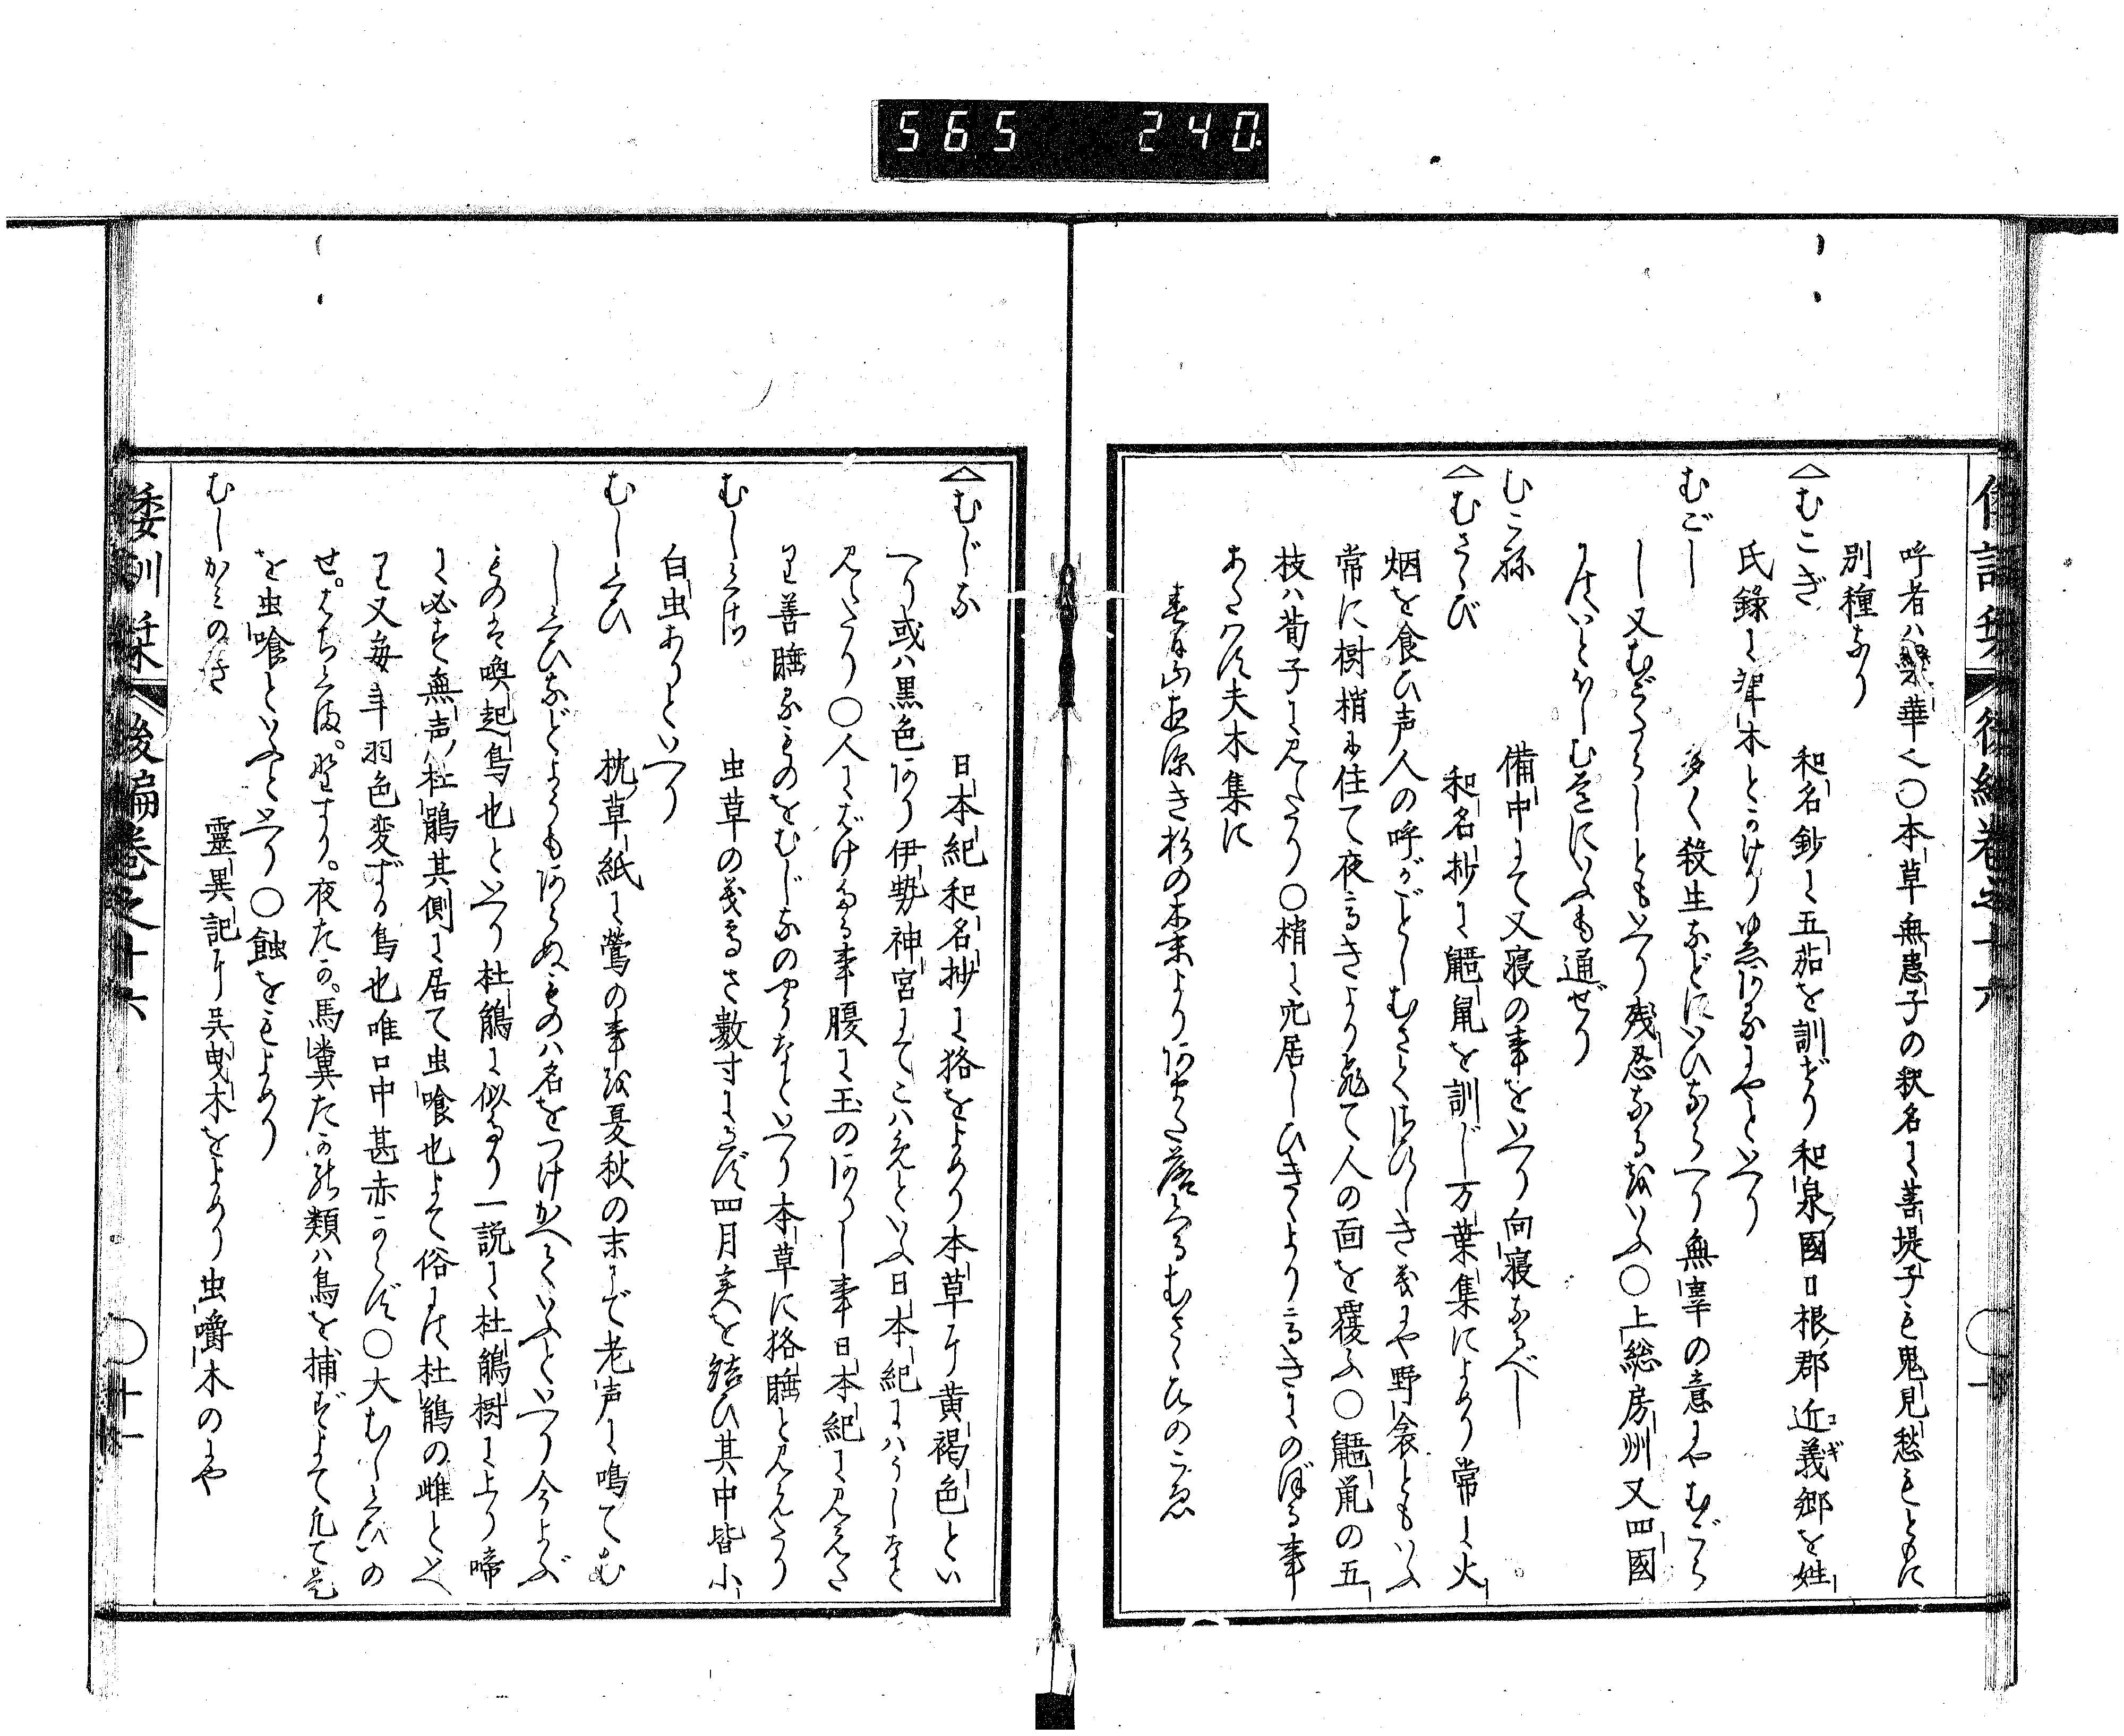 565 240
倭訓栞 後編巻之十六 〇十
呼者ハ欒華也〇本草無患子の釈名に菩提子も鬼見愁もともに
別種なり
むこぎ 和名鈔に五茄を訓ぜり和泉國日根郡近義コギ郷を姓
氏錄に聟木とかけり
むごし 多く殺生などにいひならへり無辜の意にや むごら
し又むごたらしともいへり残忍なるをいふ〇上総房州又四國
にはいとほしむ意にいふも通ぜり
むこね 備中にて又寝の事をいへり向寝なるべし
むさゝび 和名抄に鼯鼠を訓じ万葉集によめり常に火
烟を食ひ声人の呼がごとしむさくはひしき義にや野衾ともいふ
常に樹梢に住て夜高きより飛て人の面を覆ふ〇鼯鼠の五
技ハ荀子に見えたり〇梢に穴居しひきゝより高きにのぼる事
あたはず夫木集に
春日山夜深き杉の木末よりあまた落くるむさゝびのこゑ
むじな 日本紀和名抄に狢をよめり本草に黄褐色とい
へり或ハ黒色あり伊勢神宮にてこハ免といふ日本紀にハうしなと
見えたり〇人にばけたる事腹に玉のありし事日本紀に見えた
り善睡るものをむじなのやうなといへり本草に狢睡と見えたり
むしくさ 虫草の義高さ數寸にすぎず四月実を結ひ其中皆小
白虫ありといへり
むしくひ 枕草紙に鶯の事を夏秋の末まで老声に鳴てむ
しくひなどようもあらぬものハ名をつけかへていふといへり今よぶ
ものは喚起鳥也といへり杜鵑に似たり一説に杜鵑樹に上り啼
に必ず無声ハ杜鵑其側に居て虫喰也よて俗には杜鵑の雌といへ
り又毎年羽色変ずる鳥也唯口中甚赤からず〇大むしくひの
夜たか。馬糞たかの類ハ鳥を捕ずよて凡て是
を虫喰といふといへり〇蝕をもよめり
むしかみのき 靈異記に呉曳木をよめり虫嚼木のにや
倭訓栞 後編巻之十六 〇十一